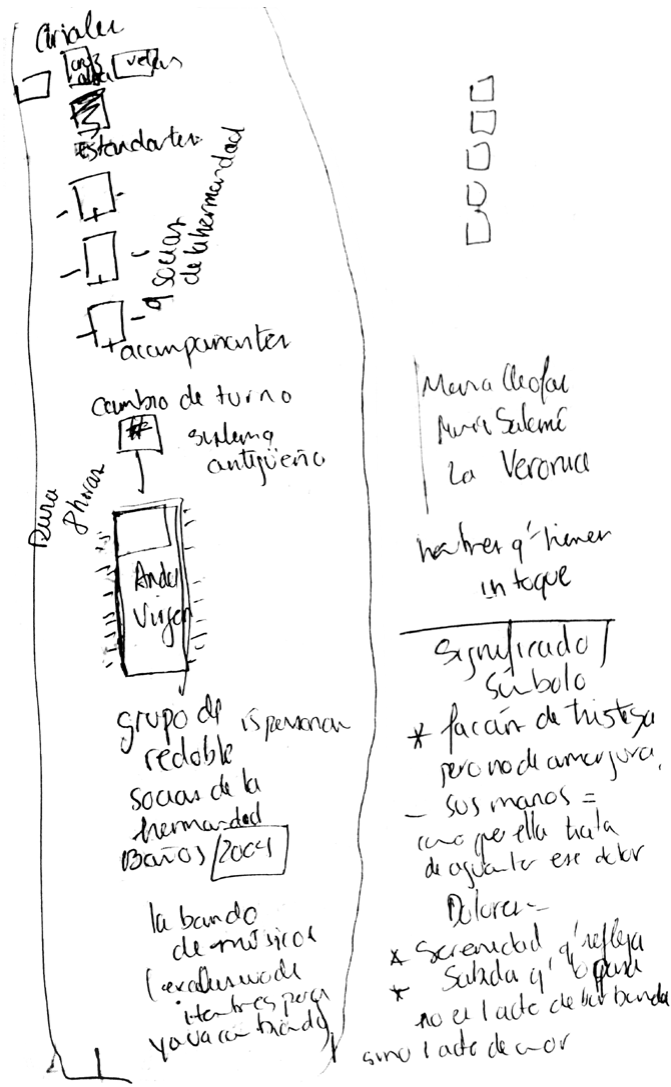 Ciriales
cruz
alta
velas
Estandartes
9 socias
de la hermandad
acompañantes
cambio de turno
#
sistema
antigüeño
Dura
8 horas
Anda
Virgen
grupo de
redoble
15 personas
socias de la
hermandad
Baños 2004
la banda
de músicos
(exclusivo de
hombres pero
ya va cambiando
Maria Cleofas
Maria Salomé
La Veronica
hombres q' tienen
un toque
Significado
Símbolo
* facción de tristeza
pero no de amargura.
- sus manos =
como que ella trata
de aguantar ese dolor
Dolores -
* Serenidad q' refleja
* Salida q'
no es 1 acto de banda
sino 1 acto de amor